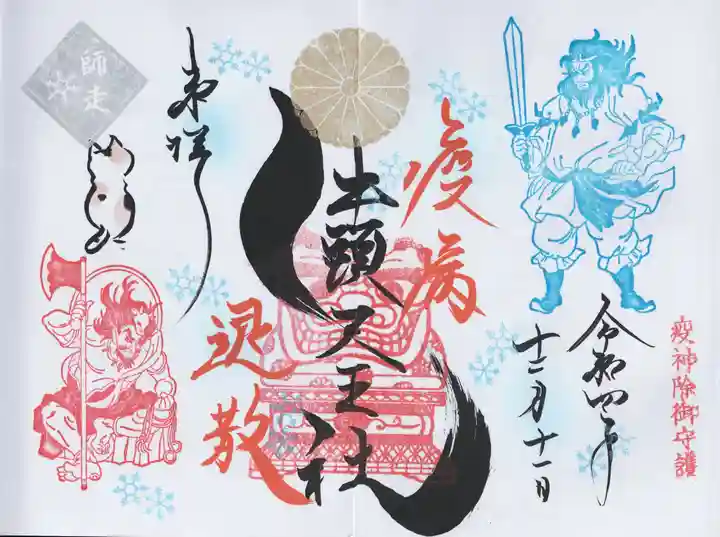 疫神除御守護
令和四年
十二月十一日
疫病
牛頭天王社
退散
奉拝
師走